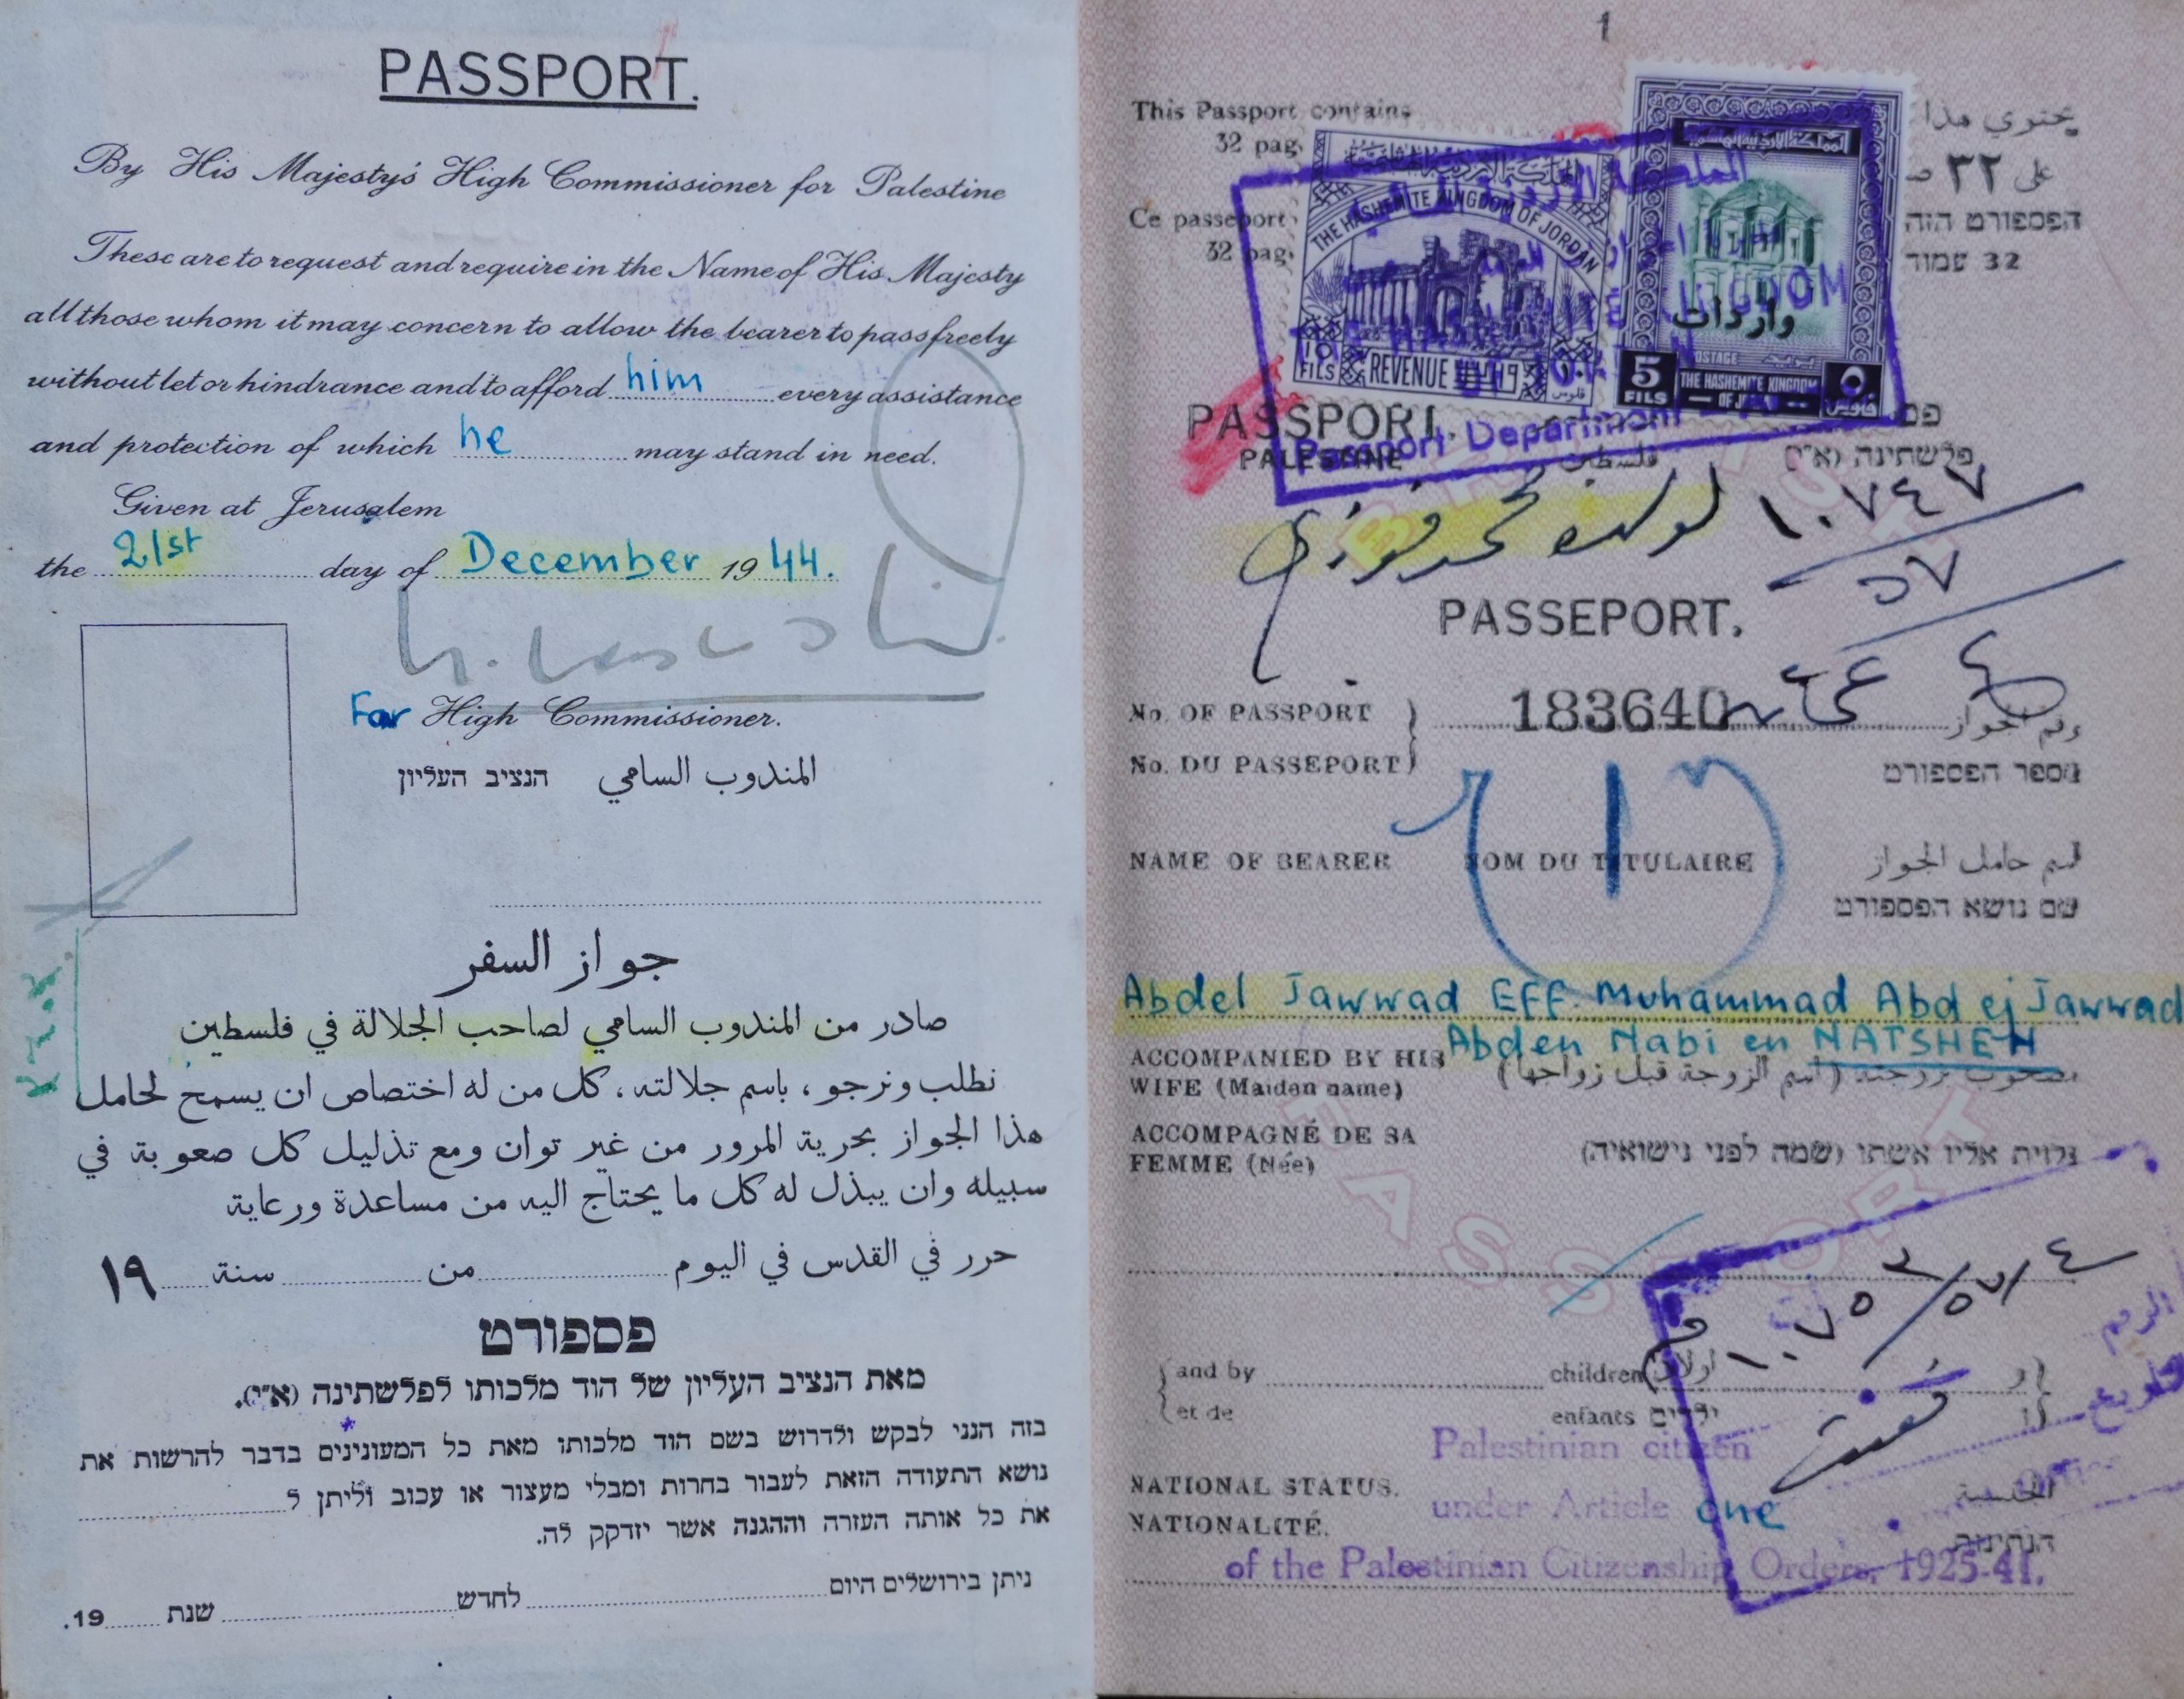 PASSPORT.
By His Majesty's High Commissioner for Palestine
These are to request and require in the Name of His Majesty
all those whom it may concern to allow the bearer to pass freely
without let or hindrance and to afford him every assistance
and protection of which he may stand in need.
Given at Jerusalem
the 21st day of December 1944.
For High Commissioner.
المندوب السامي הנציב העליון
جواز السفر
صادر من المندوب السامي لصاحب الجلالة في فلسطين
نطلب ونرجو، باسم جلالته، كل من له اختصاص ان يسمح لحامل
هذا الجواز بحرية المرور من غير توان ومع تذليل كل صعوبة في
سبيله وان يبذل له كل ما يحتاج اليه من مساعدة ورعاية
حرر في القدس في اليوم من سنة ١٩
פספורט
מאת הנציב העליון של הוד מלכותו לפלשתינה (א״י).
בזה הנני לבקש ולדרוש בשם הוד מלכותו מאת כל המעונינים בדבר להרשות את
נושא התעודה הזאת לעבור בחרות ומבלי מעצור או עכוב וליתן ל
את כל אותה העזרה וההגנה אשר יזדקק לה.
ניתן בירושלים היום לחדש שנת 19.
1
This Passport contains يحتوي هذا
32 pag على ٣٢
Ce passeport הפספורט הזה
32 pag 32 עמוד
المملكة الاردنية الهاشمية
THE HASHEMITE KINGDOM OF JORDAN
10 FILS REVENUE
واردات
POSTAGE بريد
5 FILS THE HASHEMITE KINGDOM OF JORDAN ٥
Passport Department
PASSPORT.
PALESTINE فلسطين פלשתינה (א״י)
١٠٧٤٧
٥٧
PASSEPORT.
No. OF PASSPORT 183640 رقم الجواز
No. DU PASSEPORT מספר הפספורט
NAME OF BEARER NOM DU TITULAIRE اسم حامل الجواز
שם נושא הפספורט
Abdel Jawwad EFF. Muhammad Abd ej Jawwad
Abden Nabi en NATSHEH
ACCOMPANIED BY HIS مصحوب بزوجته (اسم الزوجة قبل زواجها)
WIFE (Maiden name)
ACCOMPAGNÉ DE SA נלוית אליו אשתו (שמה לפני נישואיה)
FEMME (Née)
and by children اولاد و
et de enfants ילדים
Palestinian citizen
NATIONAL STATUS. under Article one الجنسية
NATIONALITÉ. הנתינות
of the Palestinian Citizenship Orders, 1925-41.